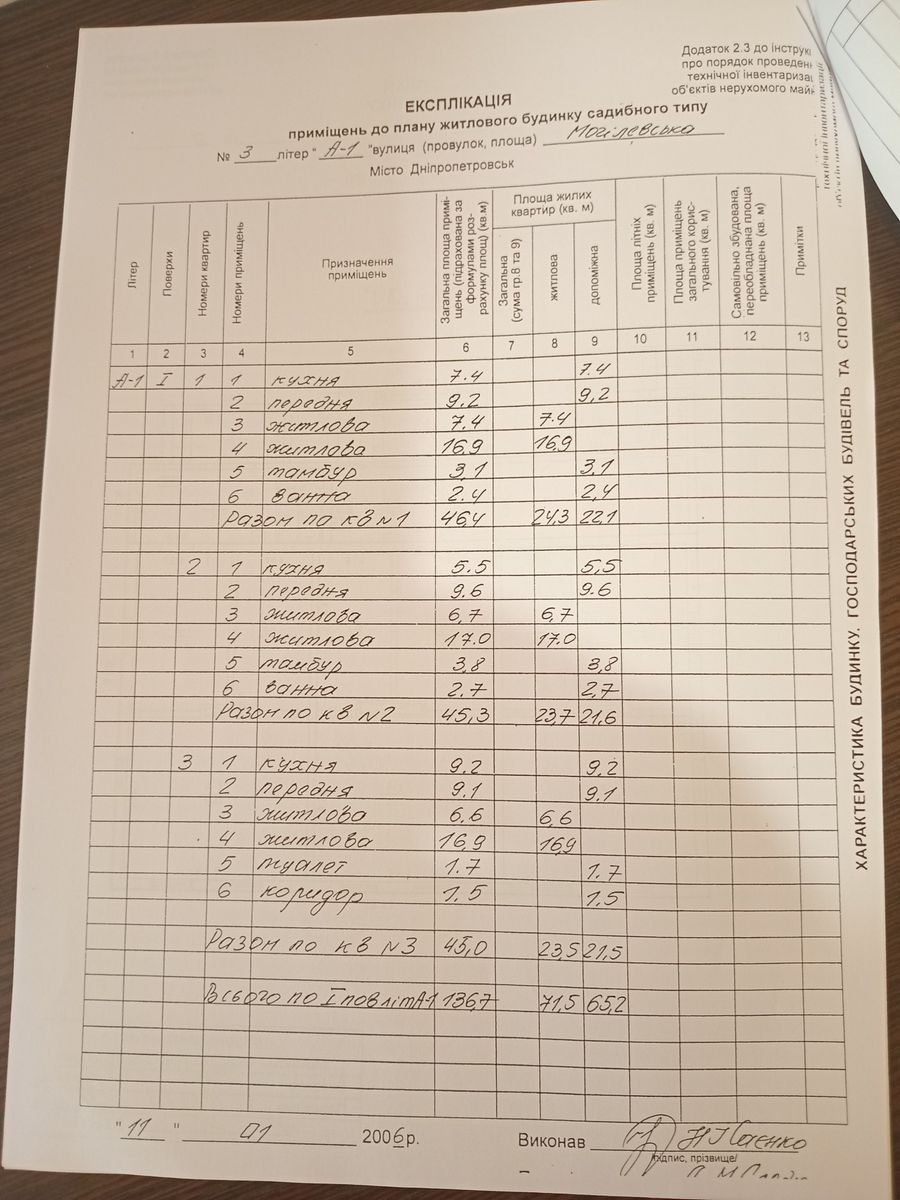 Додаток 2.3 до інструк
про порядок проведен
технічної інвентариза
об'єктів нерухомого май
ЕКСПЛІКАЦІЯ
приміщень до плану житлового будинку садибного типу
№ 3 літер " А-1 "вулиця (провулок, площа) Могілевська
Місто Дніпропетровськ
Літер Поверхи Номери квартир Номери приміщень Призначення приміщень Загальна площа примі-щень (підрахована за формулами роз-рахунку площ) (кв м) Площа жилих квартир (кв. м) Загальна (сума гр.8 та 9) житлова допоміжна Площа літніх приміщень (кв. м) Площа приміщень загального корис-тування (кв. м) Самовільно збудована, переобладнана площа приміщень (кв. м) Примітки
1 2 3 4 5 6 7 8 9 10 11 12 13
А-1 I 1 1 кухня 7.4 7.4
2 передня 9.2 9,2
3 житлова 7.4 7.4
4 житлова 16,9 16,9
5 тамбур 3,1 3,1
6 ванна 2.4 2,4
Разом по кв №1 46,4 24,3 22,1
2 1 кухня 5.5 5,5
2 передня 9.6 9.6
3 житлова 6,7 6,7
4 житлова 17.0 17.0
5 тамбур 3,8 3,8
6 ванна 2.7 2,7
Разом по кв №2 45,3 23,7 21,6
3 1 кухня 9.2 9.2
2 передня 9.1 9.1
3 житлова 6,6 6,6
4 житлова 16,9 16,9
5 туалет 1.7 1.7
6 коридор 1.5 1.5
Разом по кв №3 45,0 23,5 21,5
Всього по I пов літ А-1 136,7 71,5 65,2
"11" 01 2006 р. Виконав Н І Саєнко
підпис, прізвище/
ХАРАКТЕРИСТИКА БУДИНКУ, ГОСПОДАРСЬКИХ БУДІВЕЛЬ ТА СПОРУД